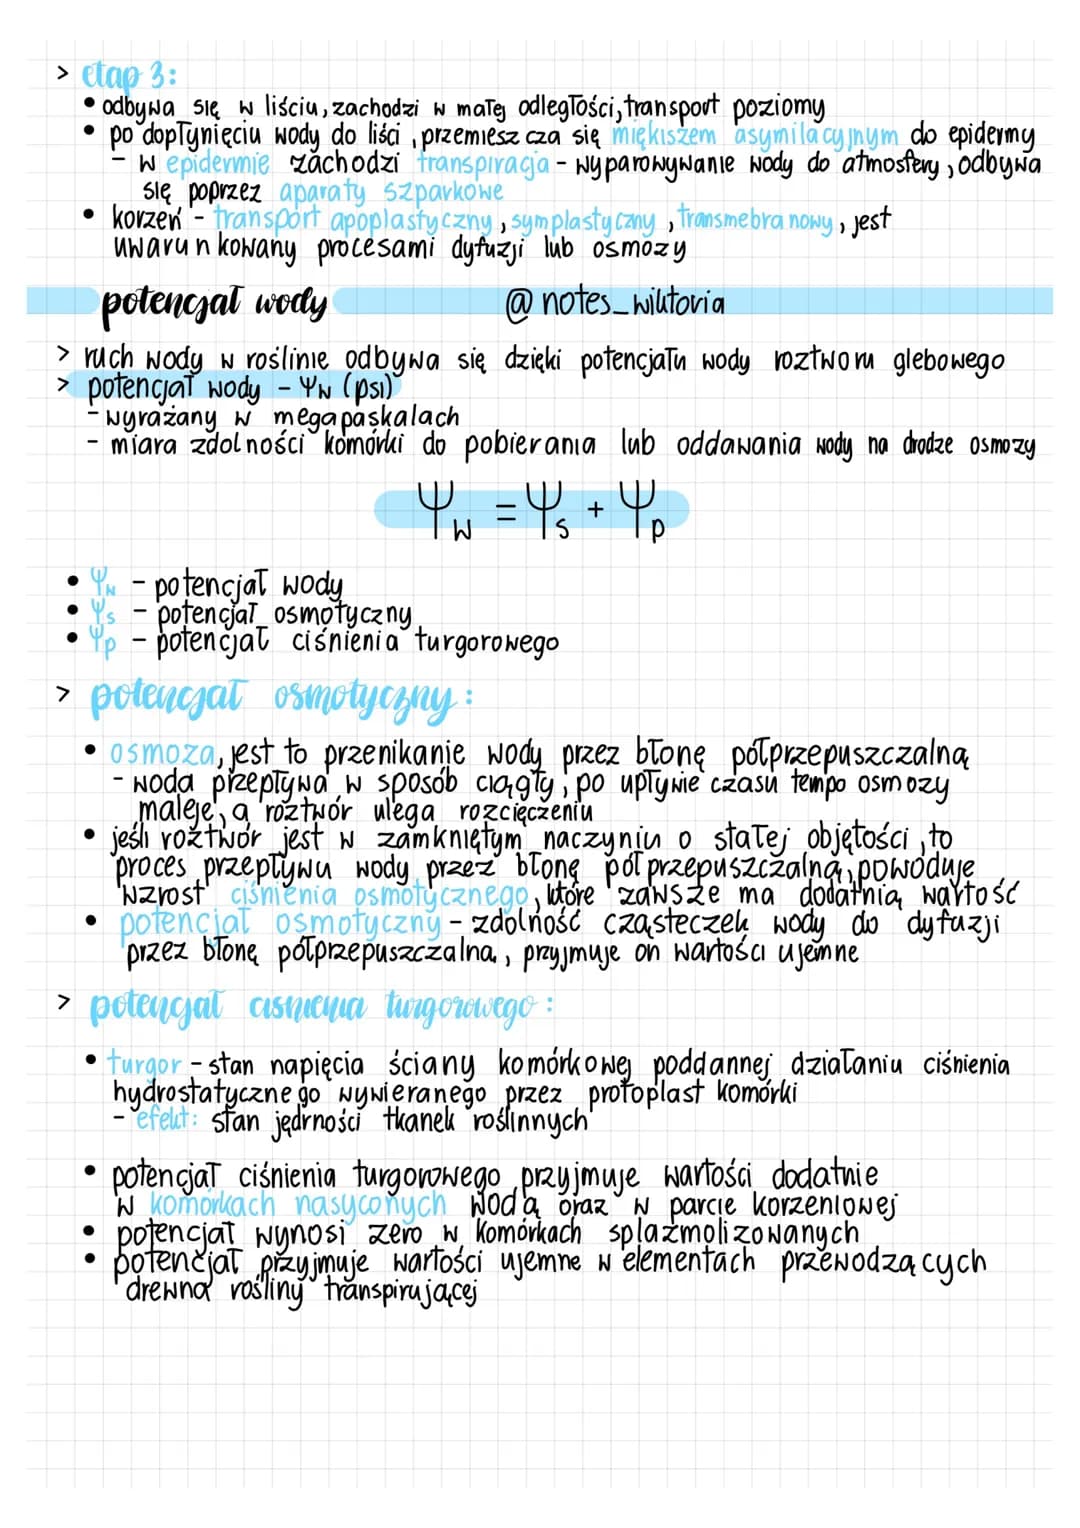 > etap 3:
• odbywa się w liściu, zachodzi w małej odległości, transport poziomy
• po dopłynięciu wody do liści, przemieszcza się miękiszem asymilacyjnym do epidermy
- w epidermie zachodzi transpiracja - wyparowywanie wody do atmosfery, odbywa
się poprzez aparaty szparkowe
• korzeń - transport apoplastyczny, symplastyczny, transmebranowy, jest
uwarunkowany procesami dyfuzji lub osmozy
potencjał wody @notes_wiktoria
> ruch wody w roślinie odbywa się dzięki potencjału wody roztworu glebowego
> potencjał wody - Ψw (psi)
- wyrażany w megapaskalach
- miara zdolności komórki do pobierania lub oddawania wody na drodze osmozy
Ψw = Ψs + Ψp
• Ψw - potencjał wody
• Ψs - potencjał osmotyczny
• Ψp - potencjał ciśnienia turgorowego
> potencjał osmotyczny:
• osmoza, jest to przenikanie wody przez błonę półprzepuszczalną
- woda przepływa w sposób ciągły, po upływie czasu tempo osmozy
maleje, a roztwór ulega rozcięczeniu
• jeśli roztwór jest w zamkniętym naczyniu o stałej objętości, to
proces przepływu wody przez błonę półprzepuszczalną, powoduje
wzrost ciśnienia osmotycznego, które zawsze ma dodatnią wartość
• potencjał osmotyczny - zdolność cząsteczek wody do dyfuzji
przez błonę półprzepuszczalna, przyjmuje on wartości ujemne
> potencjał ciśnienia turgorowego:
• turgor - stan napięcia ściany komórkowej poddannej działaniu ciśnienia
hydrostatycznego wywieranego przez protoplast komórki
- efekt: stan jędrności tkanek roślinnych
• potencjał ciśnienia turgorowego przyjmuje wartości dodatnie
w komórkach nasyconych wodą oraz w parcie korzeniowej
• potencjał wynosi zero w komórkach splazmolizowanych
• potencjał przyjmuje wartości ujemne w elementach przewodzących
drewna rośliny transpirującej